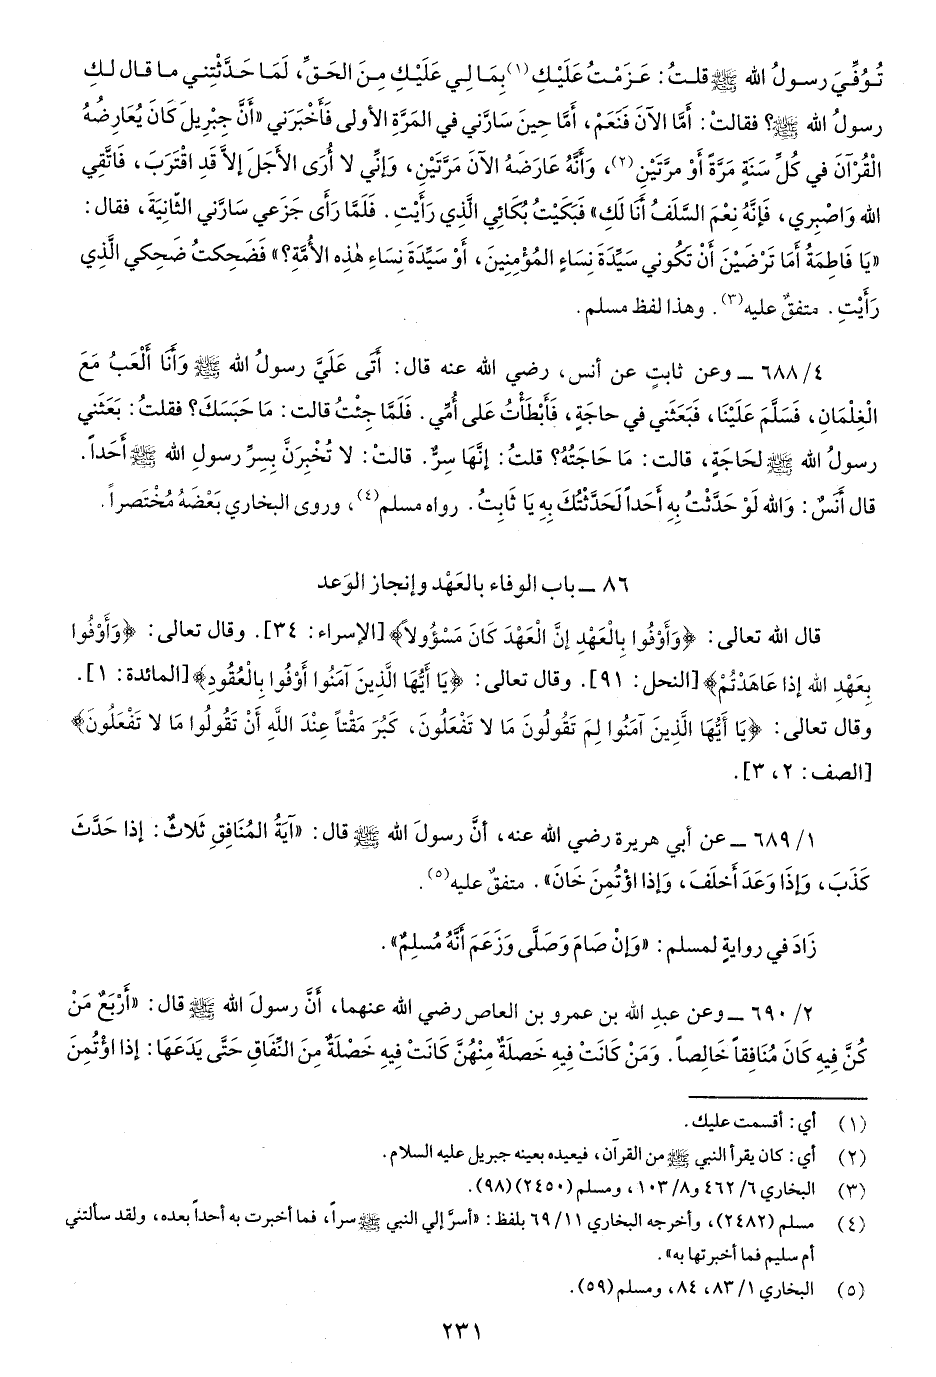 تُوُفِّيَ رسولُ الله ﷺ قلتُ: عَزَمْتُ عَلَيْكِ(١) بِمَا لِي عَلَيْكِ مِنَ الحَقِّ، لَمَا حَدَّثْتِني ما قال لكِ
رسولُ الله ﷺ؟ فقالتْ: أمَّا الآنَ فَنَعَمْ، أمَّا حِينَ سَارَّنِي في المَرَّةِ الأولى فَأَخْبَرَني «أنَّ جِبْرِيلَ كَانَ يُعَارِضُهُ
الْقُرْآنَ في كُلِّ سَنَةٍ مَرَّةً أوْ مرَّتَيْنِ(٢)، وَأَنَّهُ عَارَضَهُ الآنَ مَرَّتَيْنِ، وَإنِّي لا أُرَى الأجَلَ إلاَّ قَدِ اقْتَرَبَ، فَاتَّقِي
الله وَاصْبِرِي، فَإنَّهُ نِعْمَ السَّلَفُ أَنَا لَكِ» فَبَكَيْتُ بُكَائِي الَّذِي رَأَيْتِ. فَلَمَّا رَأَى جَزَعي سَارَّني الثَّانِيَةَ، فقال:
«يَا فَاطِمَةُ أمَا تَرْضَيْنَ أنْ تَكُوني سَيِّدَةَ نِسَاءِ المُؤْمِنِينَ، أوْ سَيِّدَةَ نِسَاءِ هٰذِهِ الأمَّةِ؟» فَضَحِكتُ ضَحِكي الَّذي
رَأَيْتِ. متفقٌ عليه(٣). وهذا لفظ مسلم.
٤/ ٦٨٨ ــ وعن ثابتٍ عن أنس، رضي الله عنه قال: أَتَى عَلَيَّ رسولُ الله ﷺ وَأَنَا أَلْعَبُ مَعَ
الْغِلْمَانِ، فَسَلَّمَ عَلَيْنَا، فَبَعَثَني في حاجَةٍ، فَأَبْطَأْتُ عَلى أُمِّي. فَلَمَّا جِئْتُ قالت: مَا حَبَسَكَ؟ فقلتُ: بَعَثَني
رسولُ الله ﷺ لحَاجَةٍ، قالت: مَا حَاجَتُهُ؟ قلتُ: إنَّهَا سِرٌّ. قالتْ: لا تُخْبِرَنَّ بِسِرِّ رسولِ الله ﷺ أَحَداً.
قال أَنَسٌ: وَالله لَوْ حَدَّثْتُ بِهِ أَحَداً لَحَدَّثْتُكَ بِهِ يَا ثَابِتُ. رواه مسلم(٤)، وروى البخاري بَعْضَهُ مُخْتَصراً.
٨٦ ــ باب الوفاء بالعَهْد وإنجاز الوَعد
قال الله تعالى: ﴿وَأَوْفُوا بِالْعَهْدِ إنَّ الْعَهْدَ كَانَ مَسْؤُولاً﴾ [الإسراء: ٣٤]. وقال تعالى: ﴿وَأَوْفُوا
بِعَهْدِ الله إذا عَاهَدْتُمْ﴾ [النحل: ٩١]. وقال تعالى: ﴿يَا أَيُّهَا الَّذِينَ آمَنُوا أَوْفُوا بِالْعُقُودِ﴾ [المائدة: ١].
وقال تعالى: ﴿يَا أَيُّهَا الَّذِينَ آمَنُوا لِمَ تَقُولُونَ مَا لا تَفْعَلُونَ، كَبُرَ مَقْتاً عِنْدَ اللَّهِ أَنْ تَقُولُوا مَا لا تَفْعَلُونَ﴾
[الصف: ٢، ٣].
١/ ٦٨٩ ــ عن أبي هريرة رضي الله عنه، أنَّ رسولَ الله ﷺ قال: «آيَةُ المُنَافِقِ ثَلاثٌ: إذا حَدَّثَ
كَذَبَ، وَإذَا وَعَدَ أَخلَفَ، وَإذا اؤْتُمِنَ خَانَ». متفقٌ عليه(٥).
زَادَ في روايةٍ لمسلم: «وَإنْ صَامَ وَصَلَّى وَزَعَمَ أَنَّهُ مُسْلِمٌ».
٢/ ٦٩٠ ــ وعن عبدِ الله بن عمرو بن العاص رضي الله عنهما، أنَّ رسولَ الله ﷺ قال: «أَرْبَعٌ مَنْ
كُنَّ فِيهِ كَانَ مُنَافِقاً خَالِصاً. وَمَنْ كَانَتْ فِيهِ خَصلَةٌ مِنْهُنَّ كَانَتْ فِيهِ خَصْلَةٌ مِنَ النِّفَاقِ حَتَّى يَدَعَهَا: إذا اؤْتُمِنَ
(١) أي: أقسمت عليك.
(٢) أي: كان يقرأ النبي ﷺ من القرآن، فيعيده بعينه جبريل عليه السلام.
(٣) البخاري ٦/ ٤٦٢ و٨/ ١٠٣، ومسلم (٢٤٥٠)(٩٨).
(٤) مسلم (٢٤٨٢)، وأخرجه البخاري ١١/ ٦٩ بلفظ: «أسرَّ إلي النبي ﷺ سراً، فما أخبرت به أحداً بعده، ولقد سألتني
أم سليم فما أخبرتها به».
(٥) البخاري ١/ ٨٣، ٨٤، ومسلم (٥٩).
٢٣١